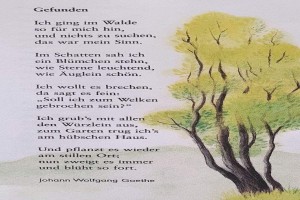 Gefunden
Ich ging im Walde
so für mich hin,
und nichts zu suchen,
das war mein Sinn.
Im Schatten sah ich
ein Blümchen stehn,
wie Sterne leuchtend,
wie Äuglein schön.
Ich wollt es brechen,
da sagt es fein:
"Soll ich zum Welken
gebrochen sein?"
Ich grub's mit allen
den Würzlein aus,
zum Garten trug ich's
am hübschen Haus.
Und pflanzt es wieder
am stillen Ort;
nun zweigt es immer
und blüht so fort.
Johann Wolfgang Goethe